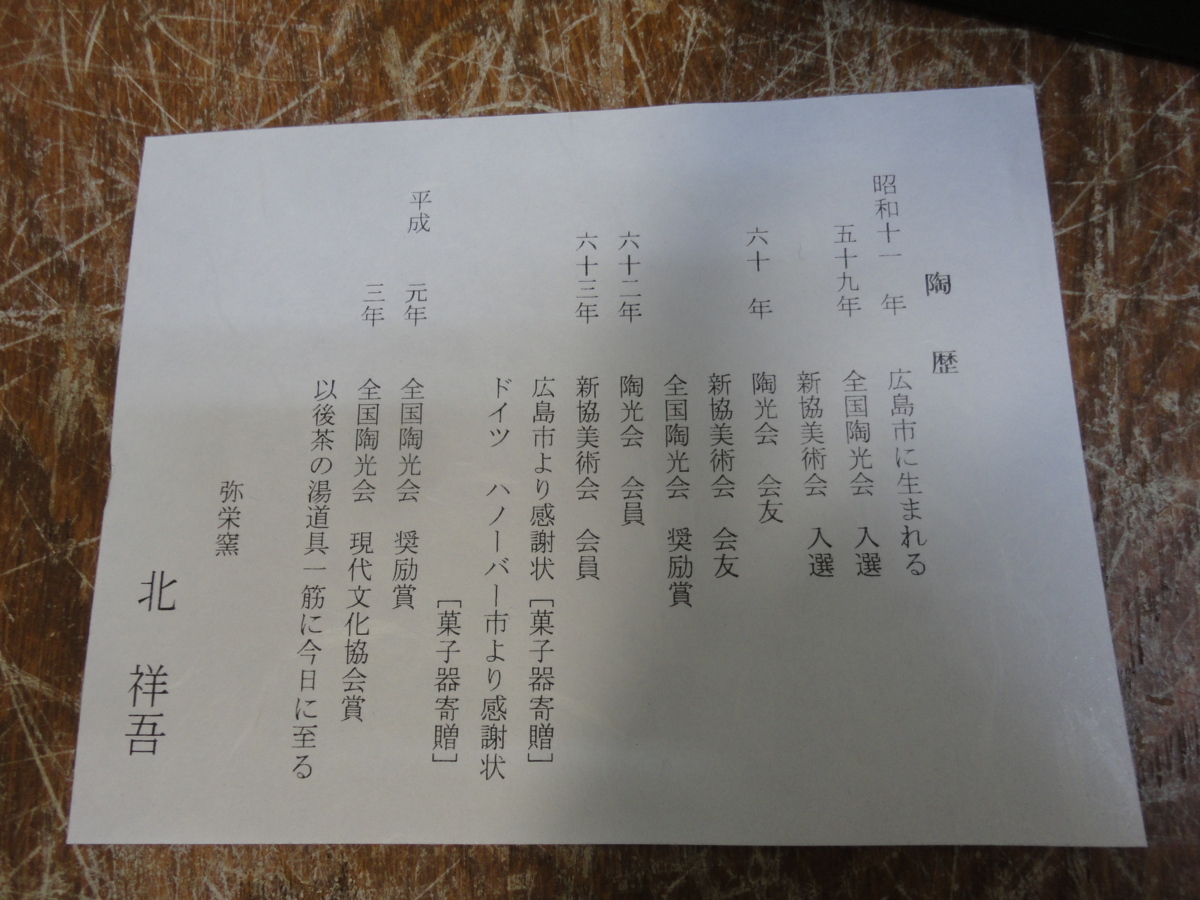 陶 歴
昭和十一 年 広島市に生まれる
五十九年 全国陶光会 入選
新協美術会 入選
六十 年 陶光会 会友
新協美術会 会友
全国陶光会 奨励賞
六十二年 陶光会 会員
六十三年 新協美術会 会員
広島市より感謝状[菓子器寄贈]
ドイツ ハノーバー市より感謝状
[菓子器寄贈]
平成 元年 全国陶光会 奨励賞
三年 全国陶光会 現代文化協会賞
以後茶の湯道具一筋に今日に至る
弥栄窯
北 祥吾